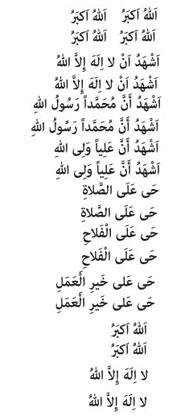 اَللهُ اَکبَرُ اَللهُ اَکبَرُ
اَللهُ اَکبَرُ اَللهُ اَکبَرُ
اَشْهَدُ اَنْ لا اِلَهَ اِلاَّ اللهُ
اَشْهَدُ اَنْ لا اِلَهَ اِلاَّ اللهُ
اَشْهَدُ أنَّ مُحَمَّداً رَسُولُ اللهِ
اَشْهَدُ أَنَّ مُحَمَّداً رَسُولُ اللهِ
اَشْهَدُ أَنَّ عَلِیاً وَلِی اللهِ
اَشْهَدُ أَنَّ عَلِیاً وَلِی اللهِ
حَی عَلَی الصَّلاةِ
حَی عَلَی الصَّلاةِ
حَی عَلَی الْفَلاحِ
حَی عَلَی الْفَلاحِ
حَی عَلی خَیرِ الْعَمَلِ
حَی عَلی خَیرِ الْعَمَلِ
اَللهُ اَکبَرُ
اَللهُ اَکبَرُ
لا اِلَهَ إِلاَّ اللهُ
لا اِلَهَ إِلاَّ اللهُ